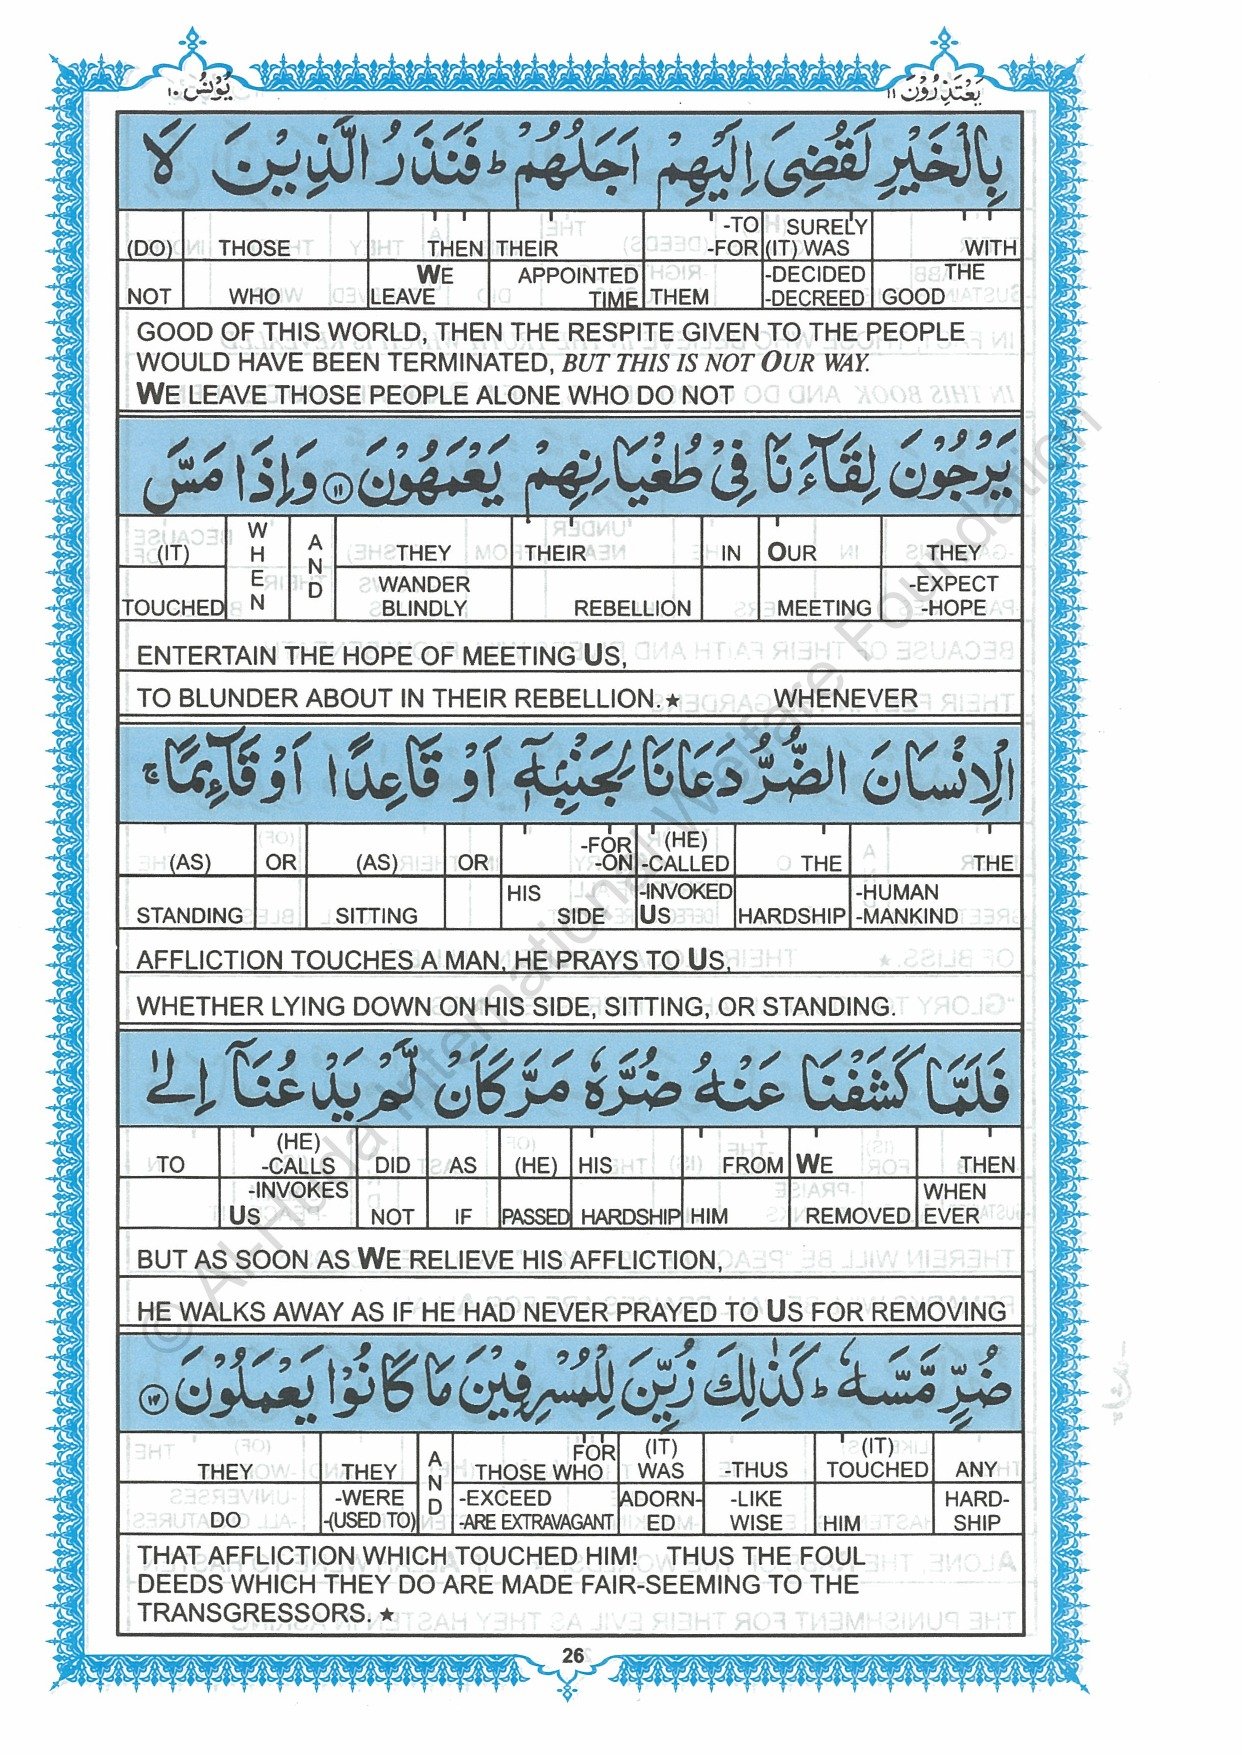 يُوْنُس ١٠
يَعْتَذِرُوْنَ ١١
بِالْخَيْرِ لَقُضِىَ اِلَيْهِمْ اَجَلُهُمْ ؕ فَنَذَرُ الَّذِيْنَ لَا
(DO) THOSE THEN THEIR -TO -FOR SURELY (IT) WAS WITH
NOT WHO WE LEAVE APPOINTED TIME THEM -DECIDED -DECREED THE GOOD
GOOD OF THIS WORLD, THEN THE RESPITE GIVEN TO THE PEOPLE
WOULD HAVE BEEN TERMINATED, BUT THIS IS NOT OUR WAY.
WE LEAVE THOSE PEOPLE ALONE WHO DO NOT
يَرْجُوْنَ لِقَآءَنَا فِىْ طُغْيَانِهِمْ يَعْمَهُوْنَ ١١ وَاِذَا مَسَّ
(IT) WHEN AND THEY THEIR IN OUR THEY
TOUCHED WANDER BLINDLY REBELLION MEETING -EXPECT -HOPE
ENTERTAIN THE HOPE OF MEETING US,
TO BLUNDER ABOUT IN THEIR REBELLION.★ WHENEVER
الْاِنْسَانَ الضُّرُّ دَعَانَا لِجَنْۢبِهٖۤ اَوْ قَاعِدًا اَوْ قَآئِمًا ۚ
(AS) OR (AS) OR -FOR -ON (HE) -CALLED THE THE
STANDING SITTING HIS SIDE -INVOKED US HARDSHIP -HUMAN -MANKIND
AFFLICTION TOUCHES A MAN, HE PRAYS TO US,
WHETHER LYING DOWN ON HIS SIDE, SITTING, OR STANDING.
فَلَمَّا كَشَفْنَا عَنْهُ ضُرَّهٗ مَرَّ كَاَنْ لَّمْ يَدْعُنَاۤ اِلٰى
TO (HE) -CALLS DID AS (HE) HIS FROM WE THEN
-INVOKES US NOT IF PASSED HARDSHIP HIM REMOVED WHEN EVER
BUT AS SOON AS WE RELIEVE HIS AFFLICTION,
HE WALKS AWAY AS IF HE HAD NEVER PRAYED TO US FOR REMOVING
ضُرٍّ مَّسَّهٗ ؕ كَذٰلِكَ زُيِّنَ لِلْمُسْرِفِيْنَ مَا كَانُوْا يَعْمَلُوْنَ ١٢
THEY THEY AND FOR THOSE WHO (IT) WAS -THUS (IT) TOUCHED ANY
DO -WERE -(USED TO) -EXCEED -ARE EXTRAVAGANT ADORN-ED -LIKE WISE HIM HARD-SHIP
THAT AFFLICTION WHICH TOUCHED HIM! THUS THE FOUL
DEEDS WHICH THEY DO ARE MADE FAIR-SEEMING TO THE
TRANSGRESSORS.★
26
© Al-Huda International Welfare Foundation